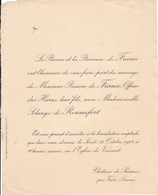 Le Baron et la Baronne de France
ont l'honneur de vous faire part du mariage
de Monsieur de France, Officier
des Haras, leur fils, avec Mademoiselle
Solange de Roumefort
Et vous prient d'assister à la bénédiction nuptiale
qui leur sera donnée le Jeudi Octobre
heures, en l'Église de
Château de
par